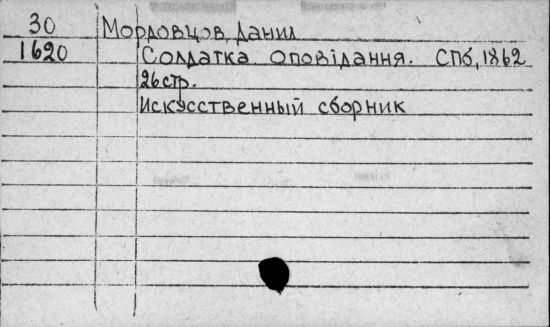 30 Мордовцов, Данил
1620 Солдатка оповідання. СПб, 1862
26 стр.
Искусственный сборник